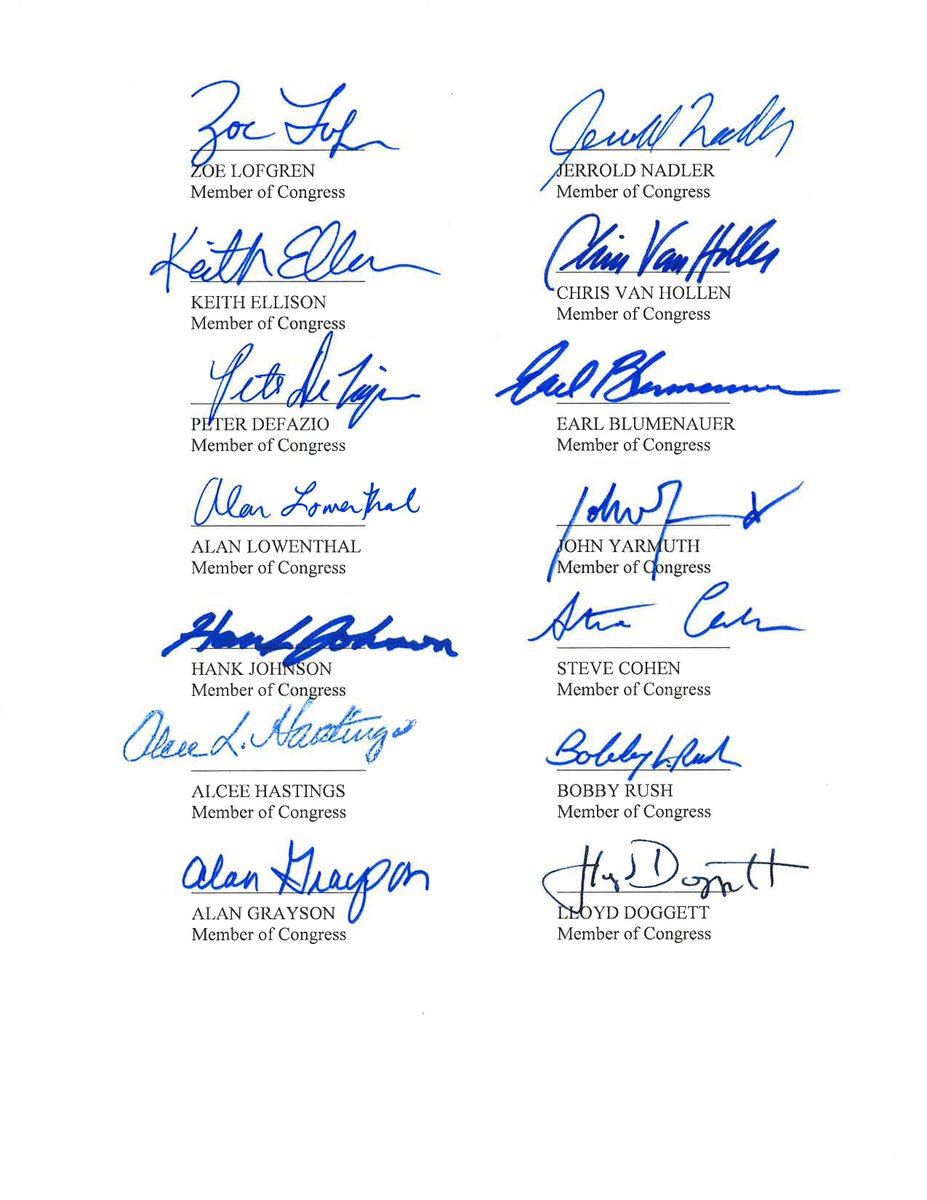 Zoe Lofgren
Jerrold Nadler
ZOE LOFGREN
JERROLD NADLER
Member of Congress
Member of Congress
Keith Ellison
Chris Van Hollen
KEITH ELLISON
CHRIS VAN HOLLEN
Member of Congress
Member of Congress
Pete DeFazio
Earl Blumenauer
PETER DEFAZIO
EARL BLUMENAUER
Member of Congress
Member of Congress
Alan Lowenthal
John Y
ALAN LOWENTHAL
JOHN YARMUTH
Member of Congress
Member of Congress
Hank Johnson
Steve Cohen
HANK JOHNSON
STEVE COHEN
Member of Congress
Member of Congress
Alcee L. Hastings
Bobby L. Rush
ALCEE HASTINGS
BOBBY RUSH
Member of Congress
Member of Congress
Alan Grayson
Lloyd Doggett
ALAN GRAYSON
LLOYD DOGGETT
Member of Congress
Member of Congress